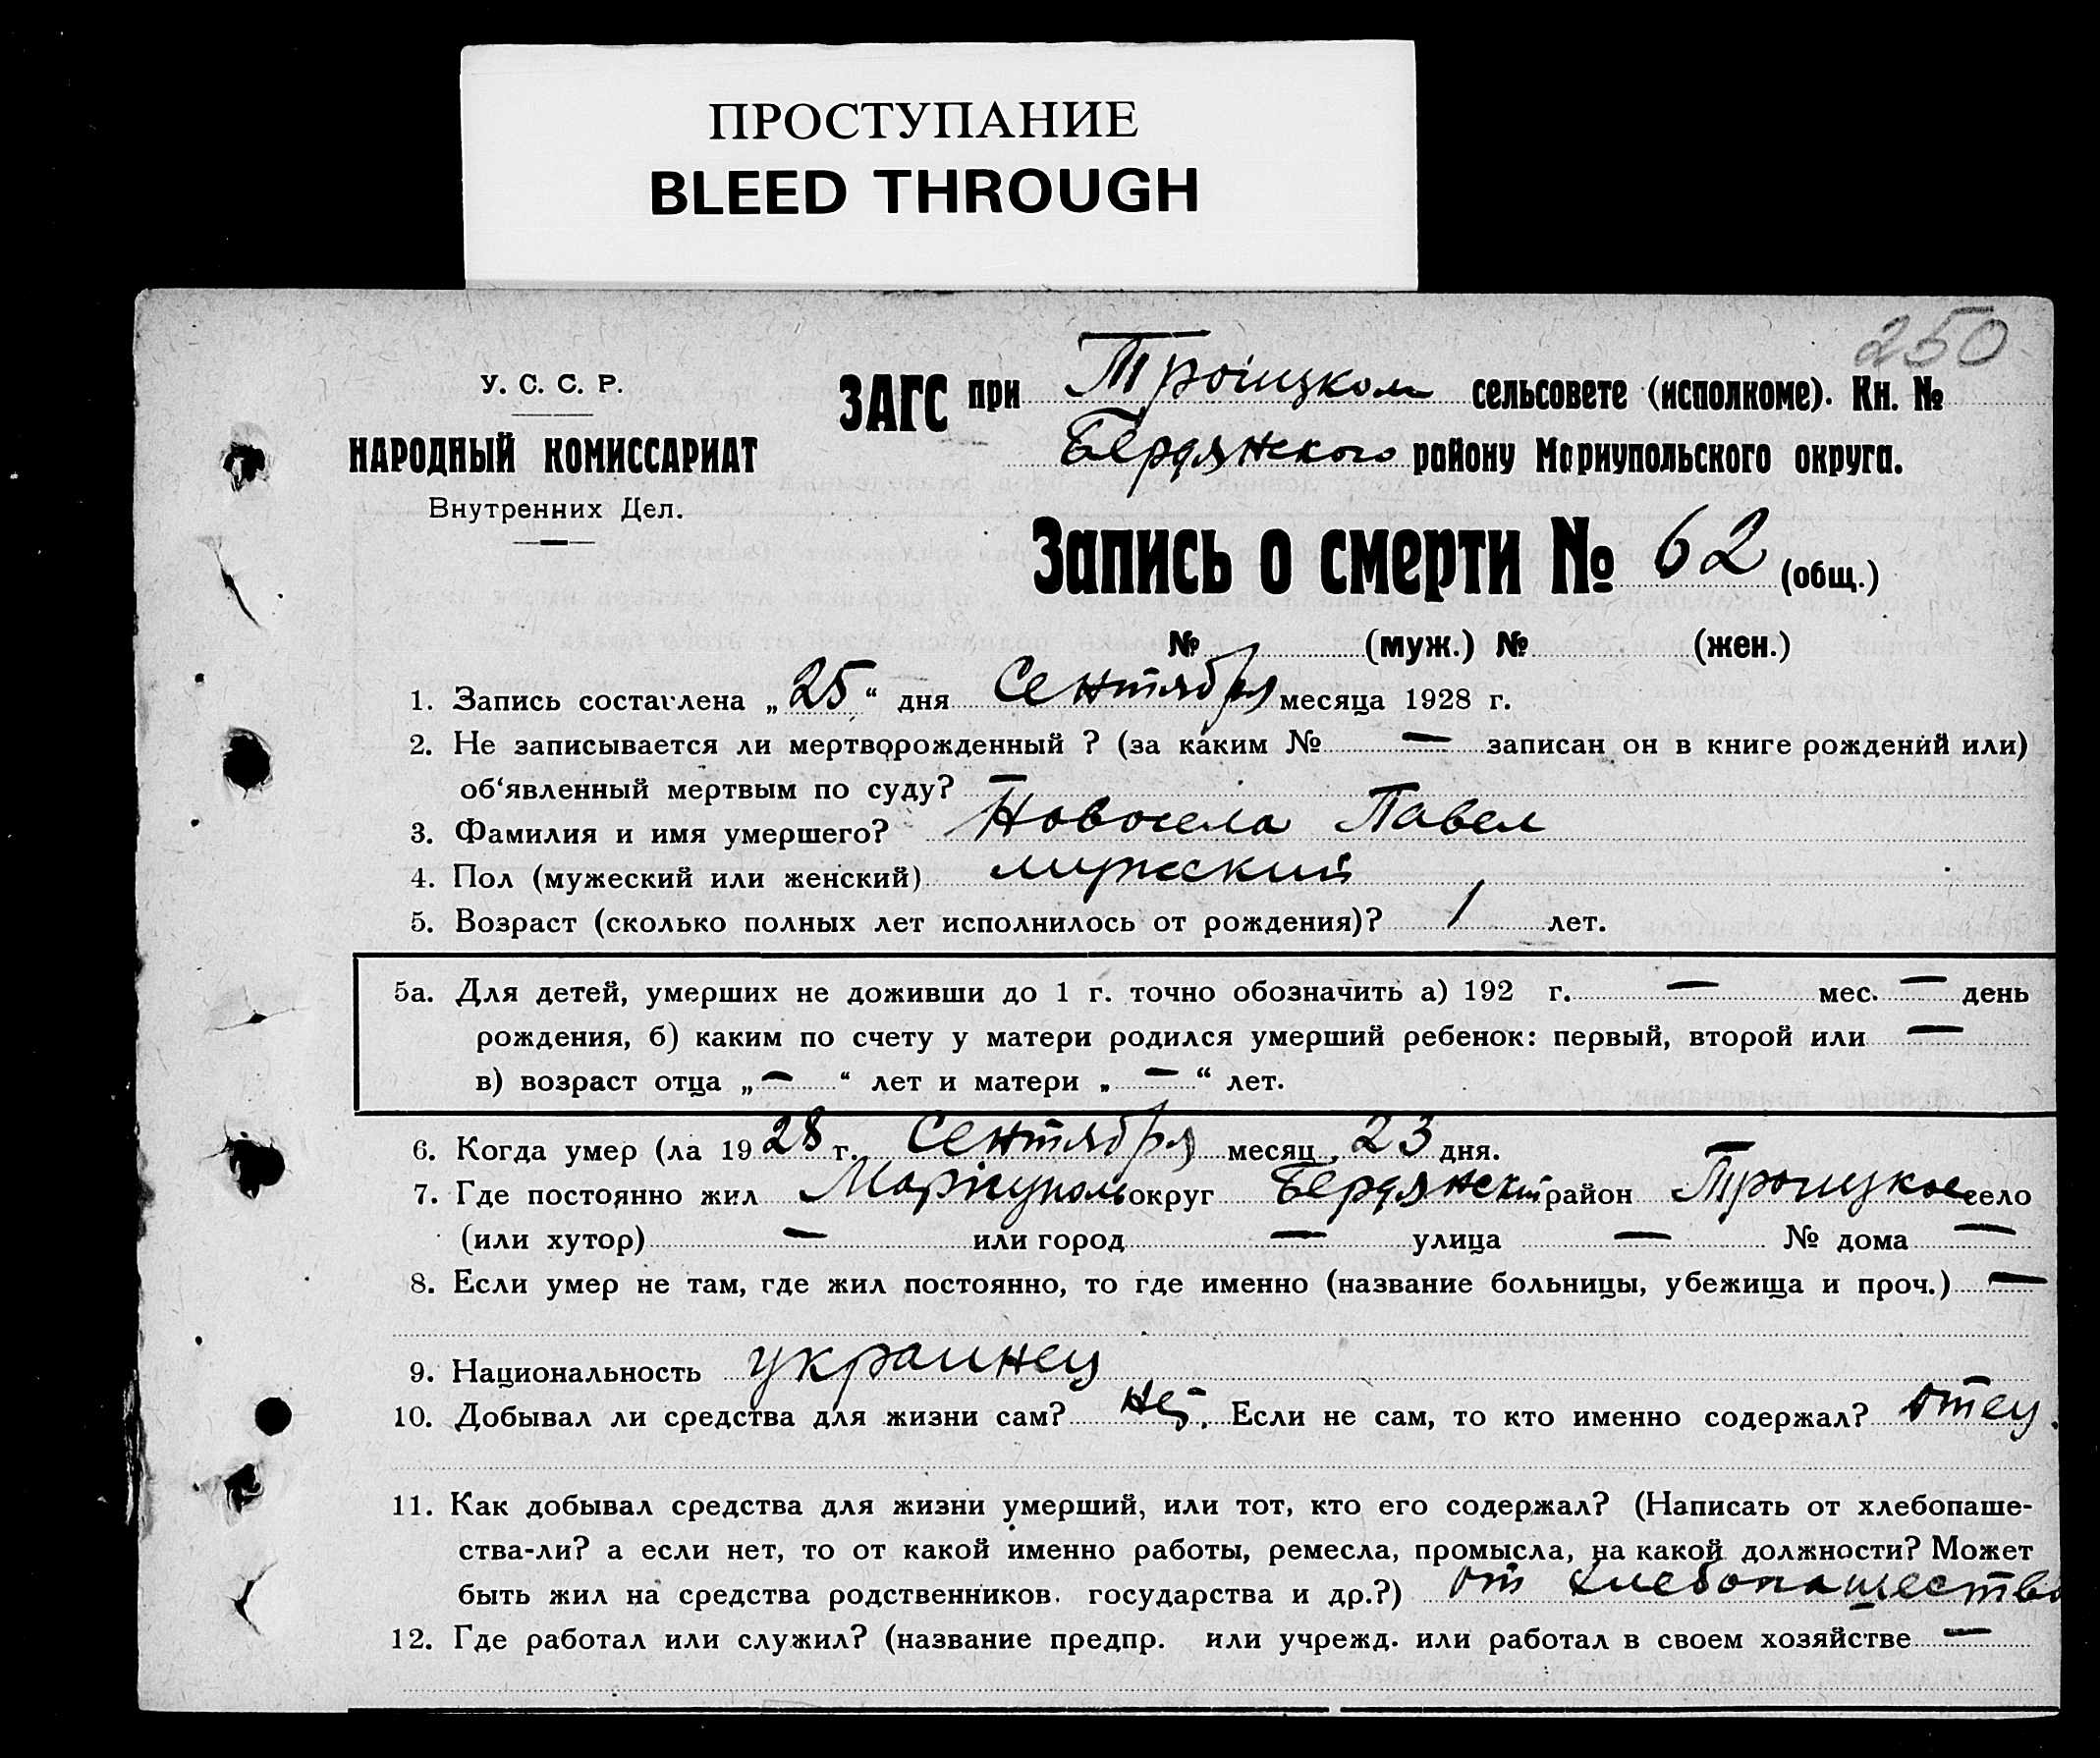 ПРОСТУПАНИЕ
BLEED THROUGH
250
У. С. С. Р.
НАРОДНЫЙ КОМИССАРИАТ
Внутренних Дел.
ЗАГС при Троицком сельсовете (исполкоме). Кн. №
Бердянского району Мариупольского округа.
Запись о смерти № 62 (общ.)
№ (муж.) № (жен.)
1. Запись составлена „25“ дня Сентября месяца 1928 г.
2. Не записывается ли мертворожденный ? (за каким № — записан он в книге рождений или)
об‘явленный мертвым по суду? —
3. Фамилия и имя умершего? Новосела Павел
4. Пол (мужеский или женский) мужеский
5. Возраст (сколько полных лет исполнилось от рождения)? 1 лет.
5а. Для детей, умерших не доживши до 1 г. точно обозначить а) 192 г. — мес. — день
рождения, б) каким по счету у матери родился умерший ребенок: первый, второй или —
в) возраст отца „—“ лет и матери „—“ лет.
6. Когда умер (ла 1928 г. Сентября месяц, 23 дня.
7. Где постоянно жил Мариуполь округ Бердянский район Троицкое село
(или хутор) — или город — улица — № дома —
8. Если умер не там, где жил постоянно, то где именно (название больницы, убежища и проч.) —
9. Национальность украинец
10. Добывал ли средства для жизни сам? нет. Если не сам, то кто именно содержал? отец.
11. Как добывал средства для жизни умерший, или тот, кто его содержал? (Написать от хлебопаше-
ства-ли? а если нет, то от какой именно работы, ремесла, промысла, на какой должности? Может
быть жил на средства родственников. государства и др.?) от хлебопашество
12. Где работал или служил? (название предпр. или учрежд. или работал в своем хозяйстве —